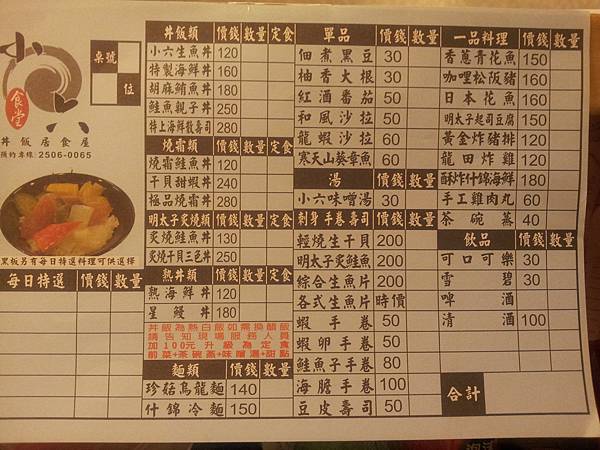 小六
食堂
丼飯居食屋
預約專線:2506-0065
桌號
位
黑板另有每日特選料理可供選擇
每日特選 價錢 數量
丼飯類 價錢 數量 定食
小六生魚丼 120
特製海鮮丼 160
胡麻鮪魚丼 180
鮭魚親子丼 250
特上海鮮散壽司 280
燒霜類 價錢 數量 定食
燒霜鮭魚丼 120
干貝甜蝦丼 240
極品燒霜丼 280
明太子炙燒類 價錢 數量 定食
炙燒鮭魚丼 130
炙燒干貝三色丼 250
熟丼類 價錢 數量 定食
熟海鮮丼 120
星鰻丼 180
丼飯為熱白飯如需換醋飯
請告知現場服務人員
加100元升級為定食
前菜+茶碗蒸+味噌湯+甜點
麵類 價錢 數量
珍菇烏龍麵 140
什錦冷麵 150
單品 價錢 數量
佃煮黑豆 30
柚香大根 30
紅酒番茄 50
和風沙拉 50
龍蝦沙拉 60
寒天山葵章魚 60
湯 價錢 數量
小六味噌湯 30
刺身手卷壽司 價錢 數量
輕燒生干貝 200
明太子炙鮭魚 200
綜合生魚片 200
各式生魚片 時價
蝦手卷 50
蝦卵手卷 50
鮭魚子手卷 80
海膽手卷 100
豆皮壽司 50
一品料理 價錢 數量
香蔥青花魚 150
咖哩松阪豬 160
日本花魚 160
明太子起司豆腐 150
黃金炸豬排 120
龍田炸雞 120
酥炸什錦海鮮 180
手工雞肉丸 60
茶碗蒸 40
飲品 價錢 數量
可口可樂 30
雪碧 30
啤酒
清酒 100
合計